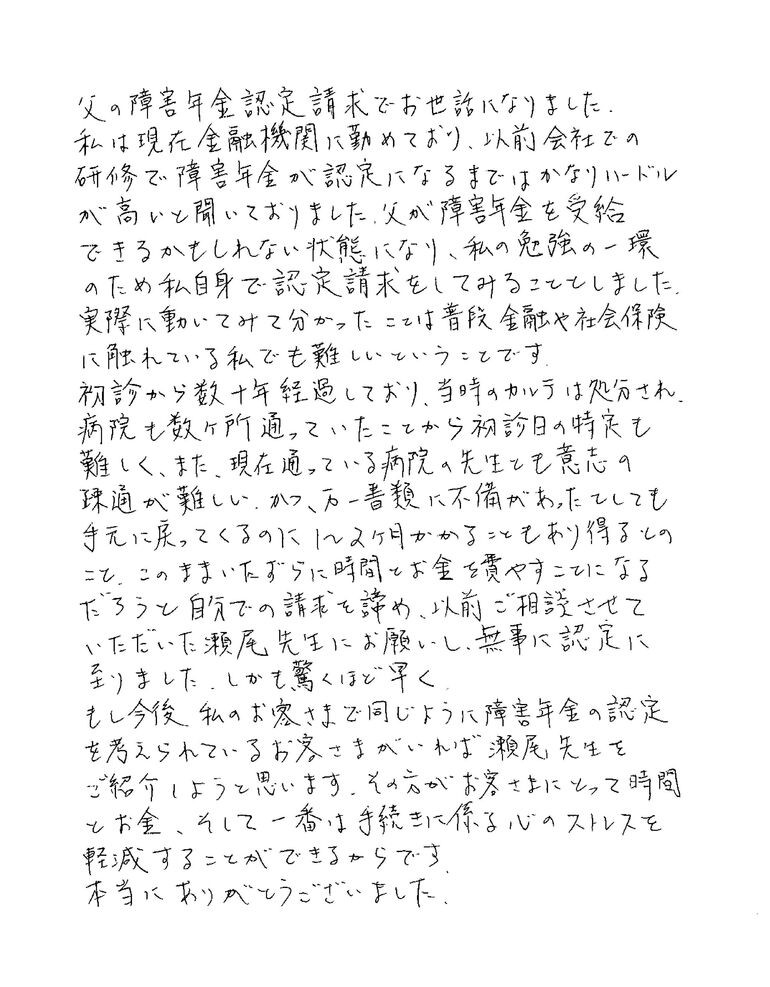 父の障害年金認定請求でお世話になりました.
私は現在金融機関に勤めており、以前会社での
研修で障害年金が認定になるまではかなりハードル
が高いと聞いておりました.父が障害年金を受給
できるかもしれない状態になり、私の勉強の一環
のため私自身で認定請求をしてみることとしました.
実際に動いてみて分かったことは普段金融や社会保険
に触れている私でも難しいということです.
初診から数十年経過しており、当時のカルテは処分され、
病院も数ヶ所通っていたことから初診日の特定も
難しく、また、現在通っている病院の先生とも意志の
疎通が難しい.かつ、万一書類に不備があったとしても
手元に戻ってくるのに1〜2ヶ月かかることもあり得るとの
こと.このままいたずらに時間とお金を費やすことになる
だろうと自分での請求を諦め、以前ご相談させて
いただいた瀬尾先生にお願いし、無事に認定に
至りました.しかも驚くほど早く.
もし今後、私のお客さまで同じように障害年金の認定
を考えられているお客さまがいれば瀬尾先生を
ご紹介しようと思います.その方がお客さまにとって時間
とお金、そして一番は手続きに係る心のストレスを
軽減することができるからです.
本当にありがとうございました.